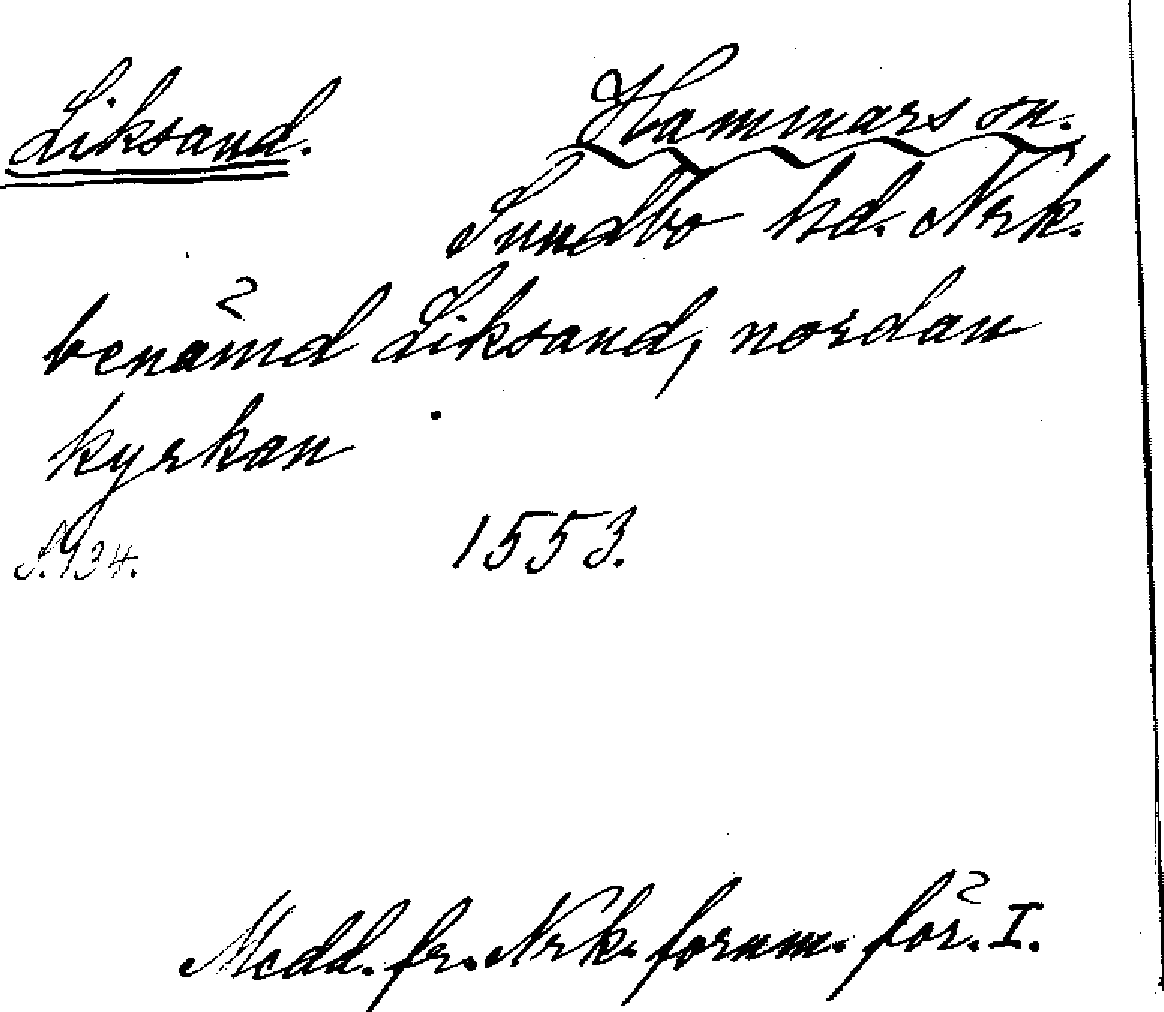 Liksand. Hammars sn.
Sundbo hd. Nrk.
benämd Liksand, nordan
kyrkan
S. 134. 1553.
Medd. fr. Nrk. fornm. för. I.